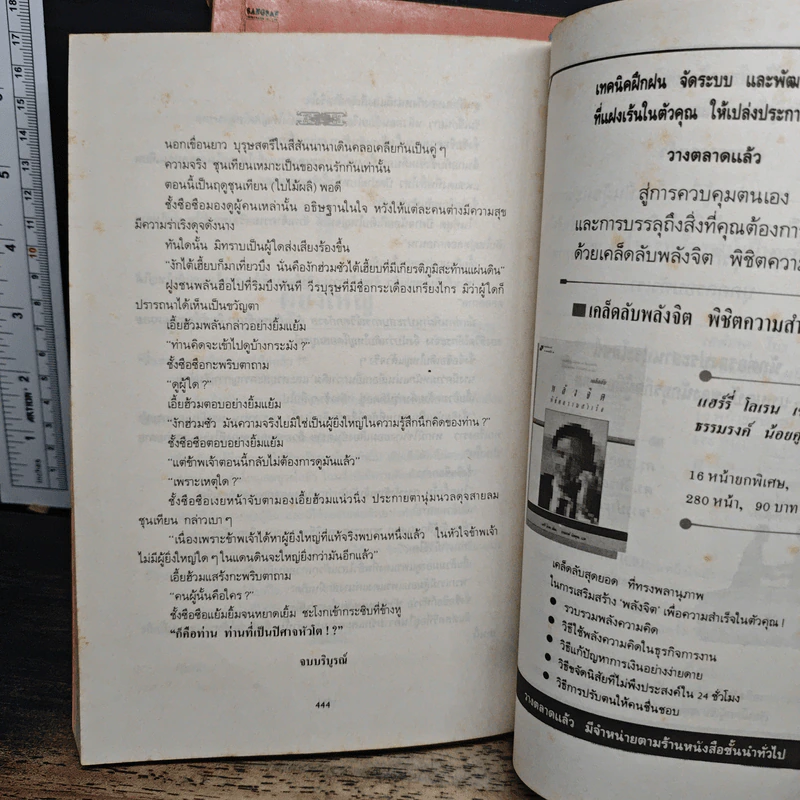 SANGDAD
นอกเขื่อนยาว บุรุษสตรีในสีสันนานาเดินคลอเคลียกันเป็นคู่ ๆ
ความจริง ชุนเทียนเหมาะเป็นของคนรักกันเท่านั้น
ตอนนี้เป็นฤดูชุนเทียน (ใบไม้ผลิ) พอดี
ซั้งซือซือมองดูผู้คนเหล่านั้น อธิษฐานในใจ หวังให้แต่ละคนต่างมีความสุข
มีความร่าเริงดุจดั่งนาง
ทันใดนั้น มิทราบเป็นผู้ใดส่งเสียงร้องขึ้น
“งักไต้เฮี้ยบก็มาเที่ยวบึง นั่นคืองักฮ่วมซัวไต้เฮี้ยบที่มีเกียรติภูมิสะท้านแผ่นดิน”
ฝูงชนพลันฮือไปที่ริมบึงทันที วีรบุรุษที่มีชื่อกระเดื่องเกรียงไกร มิว่าผู้ใดก็
ปรารถนาได้เห็นเป็นขวัญตา
เอี้ยฮ้วมพลันกล่าวอย่างยิ้มแย้ม
“ท่านคิดจะเข้าไปดูบ้างกระมัง ?”
ซั้งซือซือกะพริบตาถาม
“ดูผู้ใด ?”
เอี้ยฮ้วมตอบอย่างยิ้มแย้ม
“งักฮ่วมซัว มันความจริงไยมิใช่เป็นผู้ยิ่งใหญ่ในความรู้สึกนึกคิดของท่าน ?”
ซั้งซือซือตอบอย่างยิ้มแย้ม
“แต่ข้าพเจ้าตอนนี้กลับไม่ต้องการดูมันแล้ว”
“เพราะเหตุใด ?”
ซั้งซือซือเงยหน้าจับตามองเอี้ยฮ้วมแน่วนิ่ง ประกายตานุ่มนวลดุจสายลม
ชุนเทียน กล่าวเบา ๆ
“เนื่องเพราะข้าพเจ้าได้หาผู้ยิ่งใหญ่ที่แท้จริงพบคนหนึ่งแล้ว ในหัวใจข้าพเจ้า
ไม่มีผู้ยิ่งใหญ่ใด ๆ ในแดนดินจะใหญ่ยิ่งกว่ามันอีกแล้ว”
เอี้ยฮ้วมแสร้งกะพริบตาถาม
“คนผู้นั้นคือใคร ?”
ซั้งซือซือแย้มยิ้มจนหยาดเยิ้ม ชะโงกเข้ากระซิบที่ข้างหู
“ก็คือท่าน ท่านที่เป็นปิศาจหัวโต ! ?”
จบบริบูรณ์
444
เทคนิคฝึกฝน จัดระบบ และพัฒ
ที่แฝงเร้นในตัวคุณ ให้เปล่งประกา
วางตลาดแล้ว
สู่การควบคุมตนเอง
และการบรรลุถึงสิ่งที่คุณต้องกา
ด้วยเคล็ดลับพลังจิต พิชิตความ
■ เคล็ดลับพลังจิต พิชิตความสำ
พลังจิต
แฮร์รี่ โลเรน เ
ธรรมรงค์ น้อยคู
16 หน้ายกพิเศษ,
280 หน้า, 90 บาท
เคล็ดลับสุดยอด ที่ทรงพลานุภาพ
ในการเสริมสร้าง 'พลังจิต' เพื่อความสำเร็จในตัวคุณ !
● รวบรวมพลังความคิด
● วิธีใช้พลังความคิดในธุรกิจการงาน
● วิธีแก้ปัญหาการเงินอย่างง่ายดาย
● วิธีขจัดนิสัยที่ไม่พึงประสงค์ใน 24 ชั่วโมง
● วิธีการปรับตนให้คนชื่นชอบ
วางตลาดแล้ว มีจำหน่ายตามร้านหนังสือชั้นนำทั่วไป